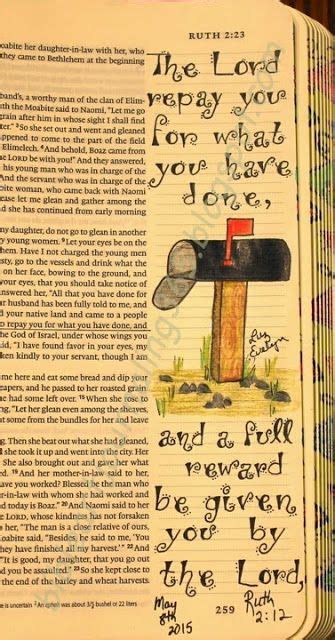 RUTH 2:23
oabite her daughter-in-law with her, who
they came to Bethlehem at the beginning
band's, a worthy man of the clan of Elim-
th the Moabite said to Naomi, "Let me go
grain after him in whose sight I shall find
ter." So she set out and went and gleaned
appened to come to the part of the field
Elimelech. 4And behold, Boaz came from
e LORD be with you!" And they answered,
his young man who was in charge of the
And the servant who was in charge of the
bite woman, who came back with Naomi
lease let me glean and gather among the
nd she has continued from early morning
my daughter, do not go to glean in another
y young women. 9Let your eyes be on the
hem. Have I not charged the young men
sty, go to the vessels and drink what the
on her face, bowing to the ground, and
your eyes, that you should take notice of
nswered her, "All that you have done for
ur husband has been fully told to me, and
d your native land and came to a people
D repay you for what you have done, and
the God of Israel, under whose wings you
aid, "I have found favor in your eyes, my
ken kindly to your servant, though I am
me here and eat some bread and dip your
eapers, and he passed to her roasted grain
e had some left over. 15When she rose to
ng, "Let her glean even among the sheaves,
ut some from the bundles for her and leave
ng. Then she beat out what she had gleaned,
she took it up and went into the city. Her
She also brought out and gave her what
d. 19And her mother-in-law said to her,
ave you worked? Blessed be the man who
er-in-law with whom she had worked and
d today is Boaz." 20And Naomi said to her
e LORD, whose kindness has not forsaken
her, "The man is a close relative of ours,
Moabite said, "Besides, he said to me, 'You
they have finished all my harvest.'" 22And
"It is good, my daughter, that you go out
d you be assaulted." 23So she kept close to
the end of the barley and wheat harvests
e is uncertain 3An ephah was about 3/5 bushel or 22 liters
259
The Lord
repay you
for what
you have
done,
Evelyn
and a full
reward
be given
you by
the Lord,
May
8th
2015
Ruth
2:12